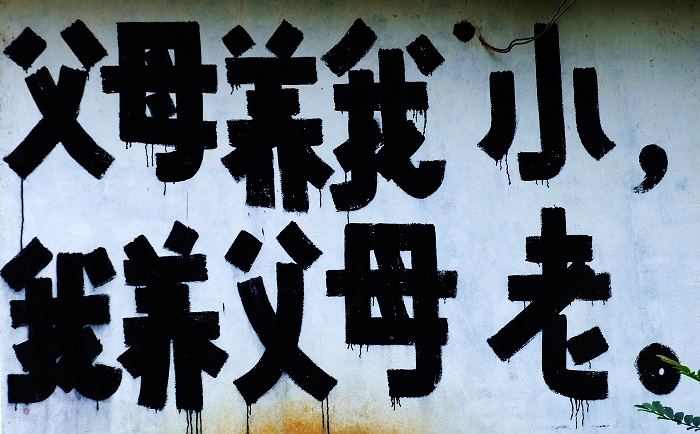 父母养我小,
我养父母老。